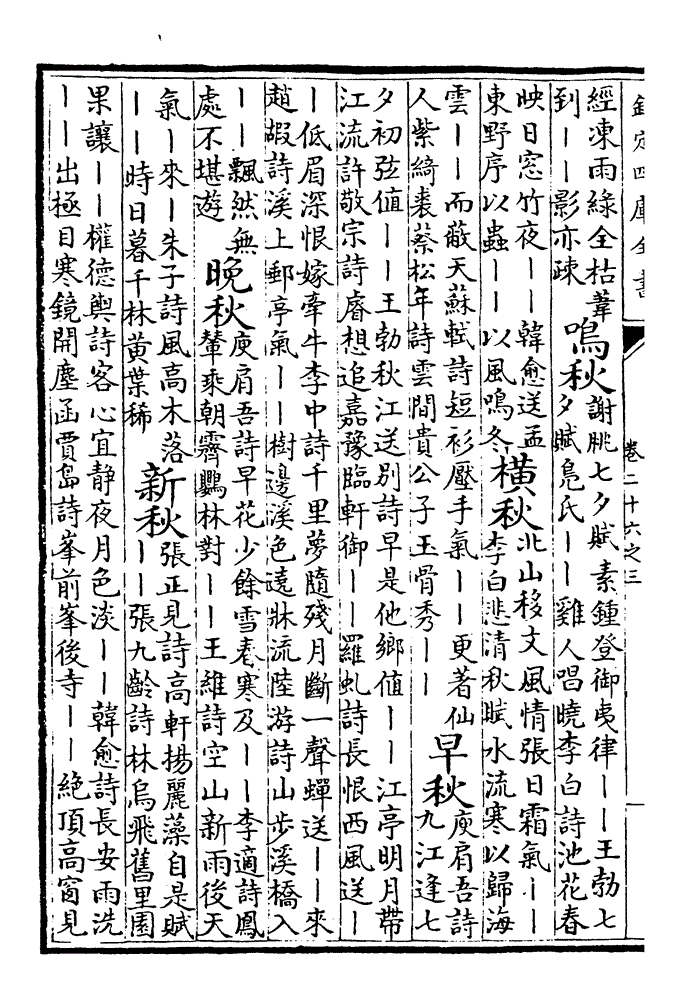 欽定四庫全書
卷二十六之三
經凍雨綠全枯葦
到——影亦疎
鳴秋
謝朓七夕賦素鍾登御夷律——王勃七
夕賦鳧氏——雞人唱曉李白詩池花春
映日窓竹夜——韓愈送孟
東野序以蟲——以風鳴冬
橫秋
北山移文風情張日霜氣——
李白悲清秋賦水流寒以歸海
雲——而蔽天蘇軾詩短衫壓手氣——更著仙
人紫綺裘蔡松年詩雲間貴公子玉骨秀——
早秋
庾肩吾詩
九江逢七
夕初弦值——王勃秋江送别詩早是他鄉值——江亭明月帶
江流許敬宗詩睿想追嘉豫臨軒御——羅虬詩長恨西風送—
—低眉深恨嫁牽牛李中詩千里夢隨殘月斷一聲蟬送——來
趙嘏詩溪上郵亭氣——樹邊溪色遠牀流陸游詩山步溪橋入
——飄然無
處不堪遊
晚秋
庾肩吾詩早花少餘雪春寒及——李適詩鳳
輦乘朝霽鸚林對——王維詩空山新雨後天
氣—來—朱子詩風高木落
——時日暮千林黄葉稀
新秋
張正見詩高軒揚麗藻自是賦
——張九齡詩林烏飛舊里園
果讓——權德輿詩客心宜静夜月色淡——韓愈詩長安雨洗
——出極目寒鏡開塵函賈島詩峯前峯後寺——絶頂高窗見